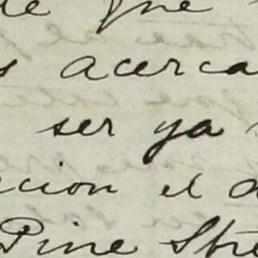 de que
s acerca
ser ya
cion el
Pine Stre